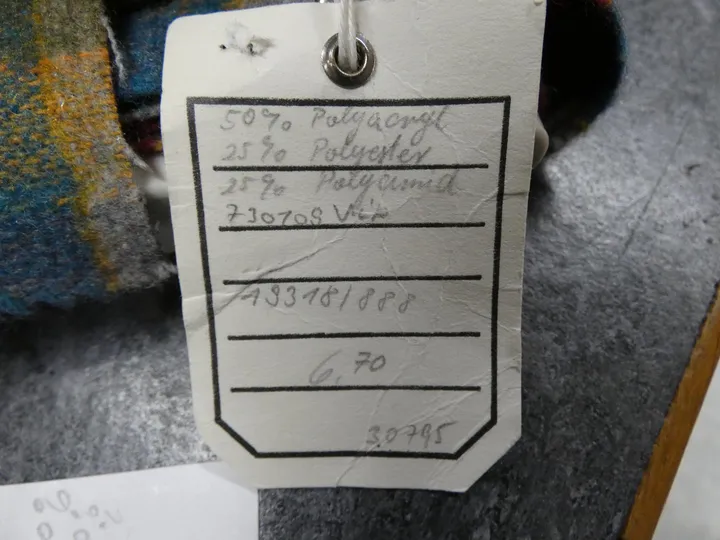 50% Polyacryl
25% Polyester
25% Polyamid
730109
19318/888
6,70
30795